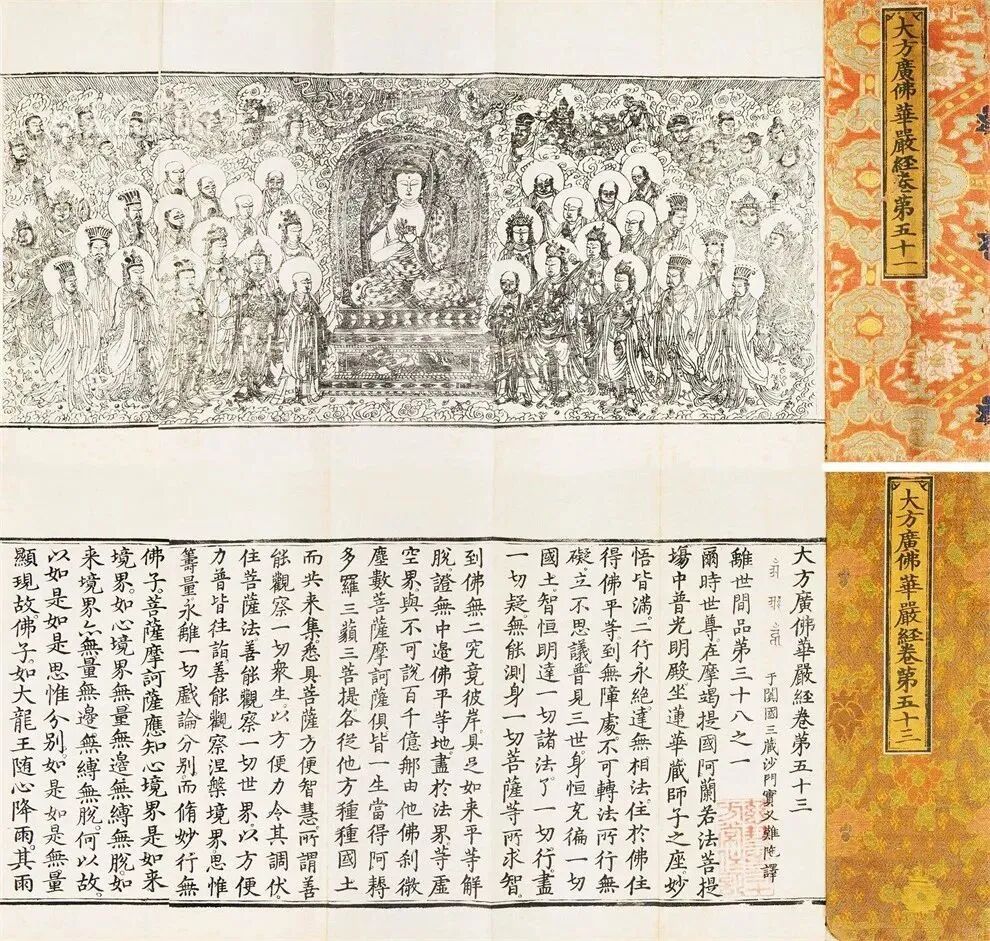 大方廣佛華嚴經卷第五十一
大方廣佛華嚴經卷第五十三
大方廣佛華嚴經卷第五十三
于闐國三藏沙門實叉難陀譯
離世間品第三十八之一
爾時世尊。在摩竭提國阿蘭若法菩提
場中普光明殿坐蓮華藏師子之座。妙
悟皆滿。二行永絕。達無相法。住於佛住。
得佛平等。到無障處。不可轉法。所行無
礙。立不思議。普見三世。身恒充徧一切
國土。智恒明達一切諸法。了一切行。盡
一切疑。無能測身。一切菩薩等所求智。
到佛無二究竟彼岸。具足如來平等解
脫。證無中邊佛平等地。盡於法界。等虛
空界。與不可說百千億那由他佛剎微
塵數菩薩摩訶薩俱。皆一生當得阿耨
多羅三藐三菩提。各從他方種種國土
而共来集。悉具菩薩方便智慧。所謂善
能觀察一切衆生。以方便力令其調伏。
住菩薩法。善能觀察一切世界。以方便
力普皆往詣。善能觀察涅槃境界。思惟
籌量。永離一切戲論分別。而脩妙行無
佛子。菩薩摩訶薩應知心境界是如来
境界。如心境界無量無邊無縛無脫。如
来境界亦無量無邊無縛無脫。何以故。
以如是如是思惟分別。如是如是無量
顯現故。佛子。如大龍王随心降雨。其雨